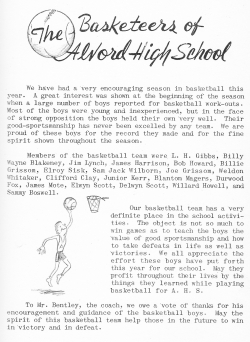 The Basketeers of
Alvord High School
We have had a very encouraging season in basketball this
year. A great interest was shown at the beginning of the season
when a large number of boys reported for basketball work-outs.
Most of the boys were young and inexperienced, but in the face
of strong opposition the boys held their own very well. Their
good-sportsmanship has never been excelled by any team. We are
proud of these boys for the record they made and for the fine
spirit shown throughout the season.
Members of the basketball team were L. H. Gibbs, Billy
Wayne Blakeney, Jim Lynch, James Harrison, Bob Howard, Billie
Grissom, Elroy Sisk, Sam Jack Wilborn, Joe Grissom, Weldon
Whitaker, Clifford Clay, Junior Kerr, Blanton Wagers, Durwood
Fox, James Mote, Elwyn Scott, Delwyn Scott, Willard Howell, and
Sammy Boswell.
Our basketball team has a very
definite place in the school activi-
ties. The object is not so much to
win games as to teach the boys the
value of good sportsmanship and how
to take defeats in life as well as
victories. We all appreciate the
effort these boys have put forth
this year for our school. May they
profit throughout their lives by the
things they learned while playing
basketball for A. H. S.
To Mr. Bentley, the coach, we owe a vote of thanks for his
encouragement and guidance of the basketball boys. May the
spirit of this basketball team help those in the future to win
in victory and in defeat.